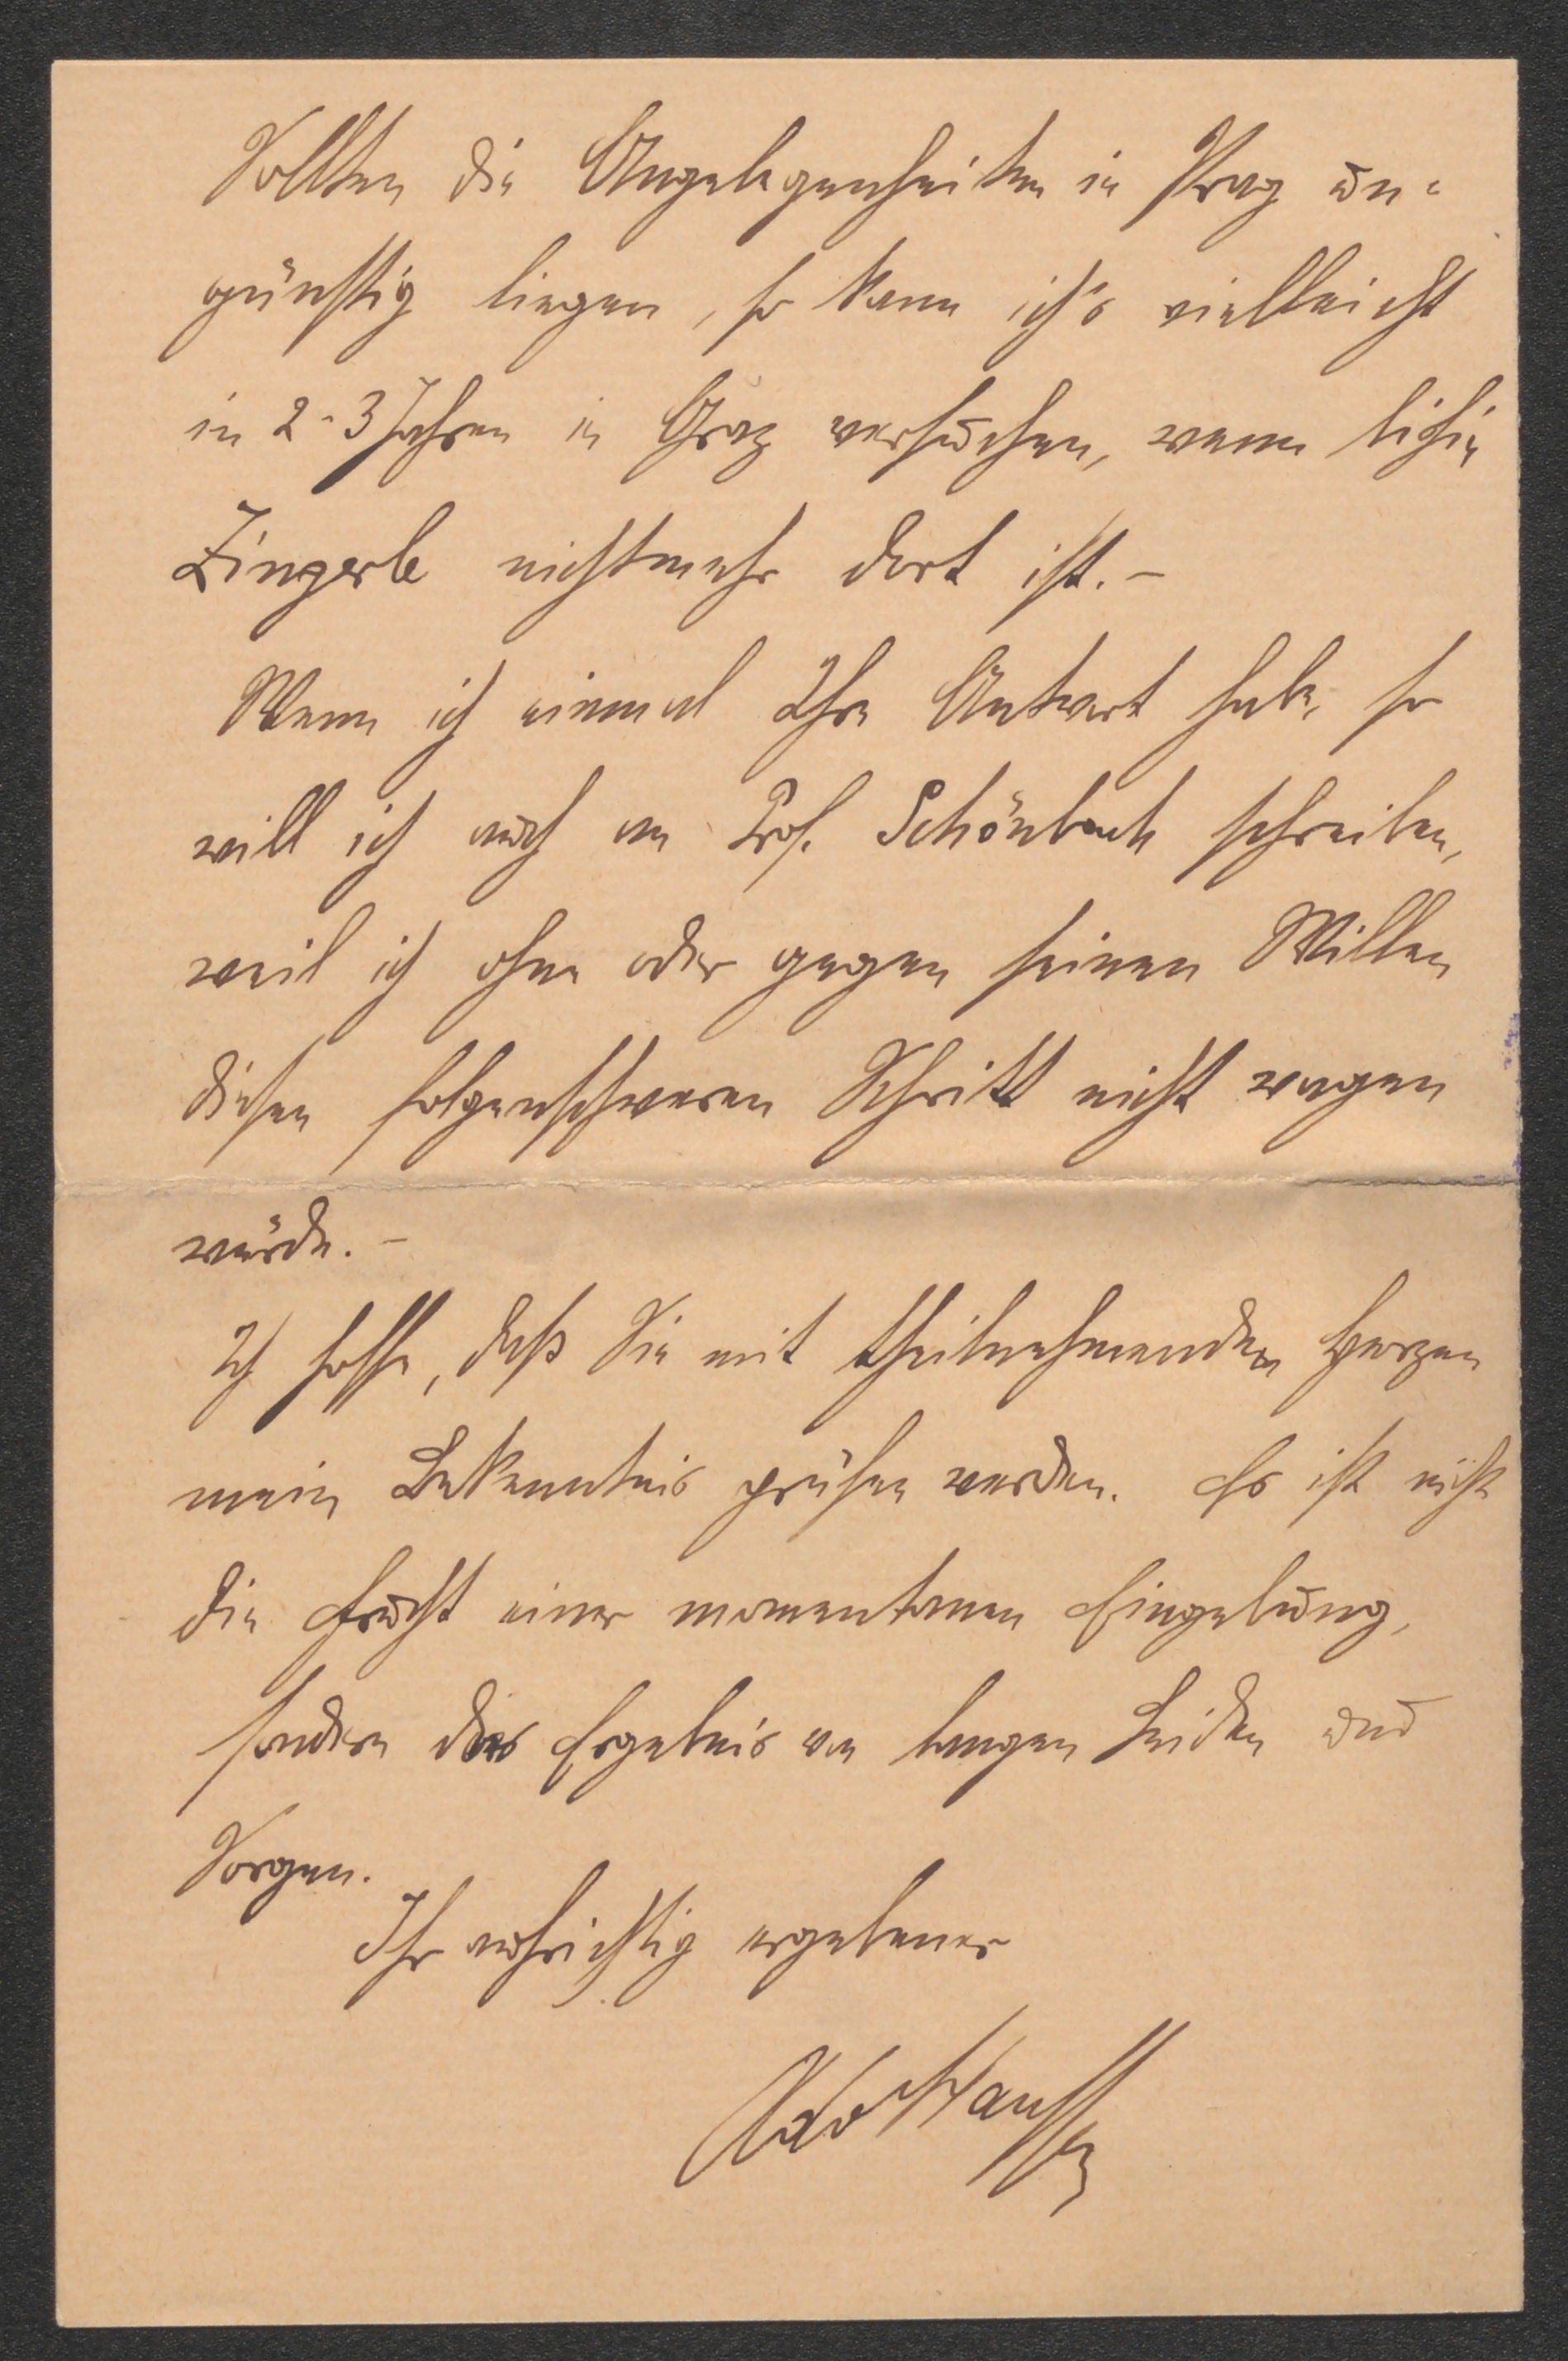 Sollten die Angelegenheiten in Prag un-
günstig liegen, so kann ich's vielleicht
in 2-3 Jahren in Graz versuchen, wenn
Zingerle nichtmehr dort ist. –
Wenn ich einmal Ihre Antwort habe, so
will ich auch an Prof. Schönbach schreiben,
weil ich ohne oder gegen seinen Willen
diesen folgenschweren Schritt nicht wagen
würde. –
Ich hoffe, daß Sie mit theilnehmenden Herzen
mein Bekenntnis prüfen werden. Es ist nicht
die Frucht einer momentanen Eingebung,
sondern das Ergebnis von langen Leiden und
Sorgen.
Ihr aufrichtig ergebener
Ad Hauffen